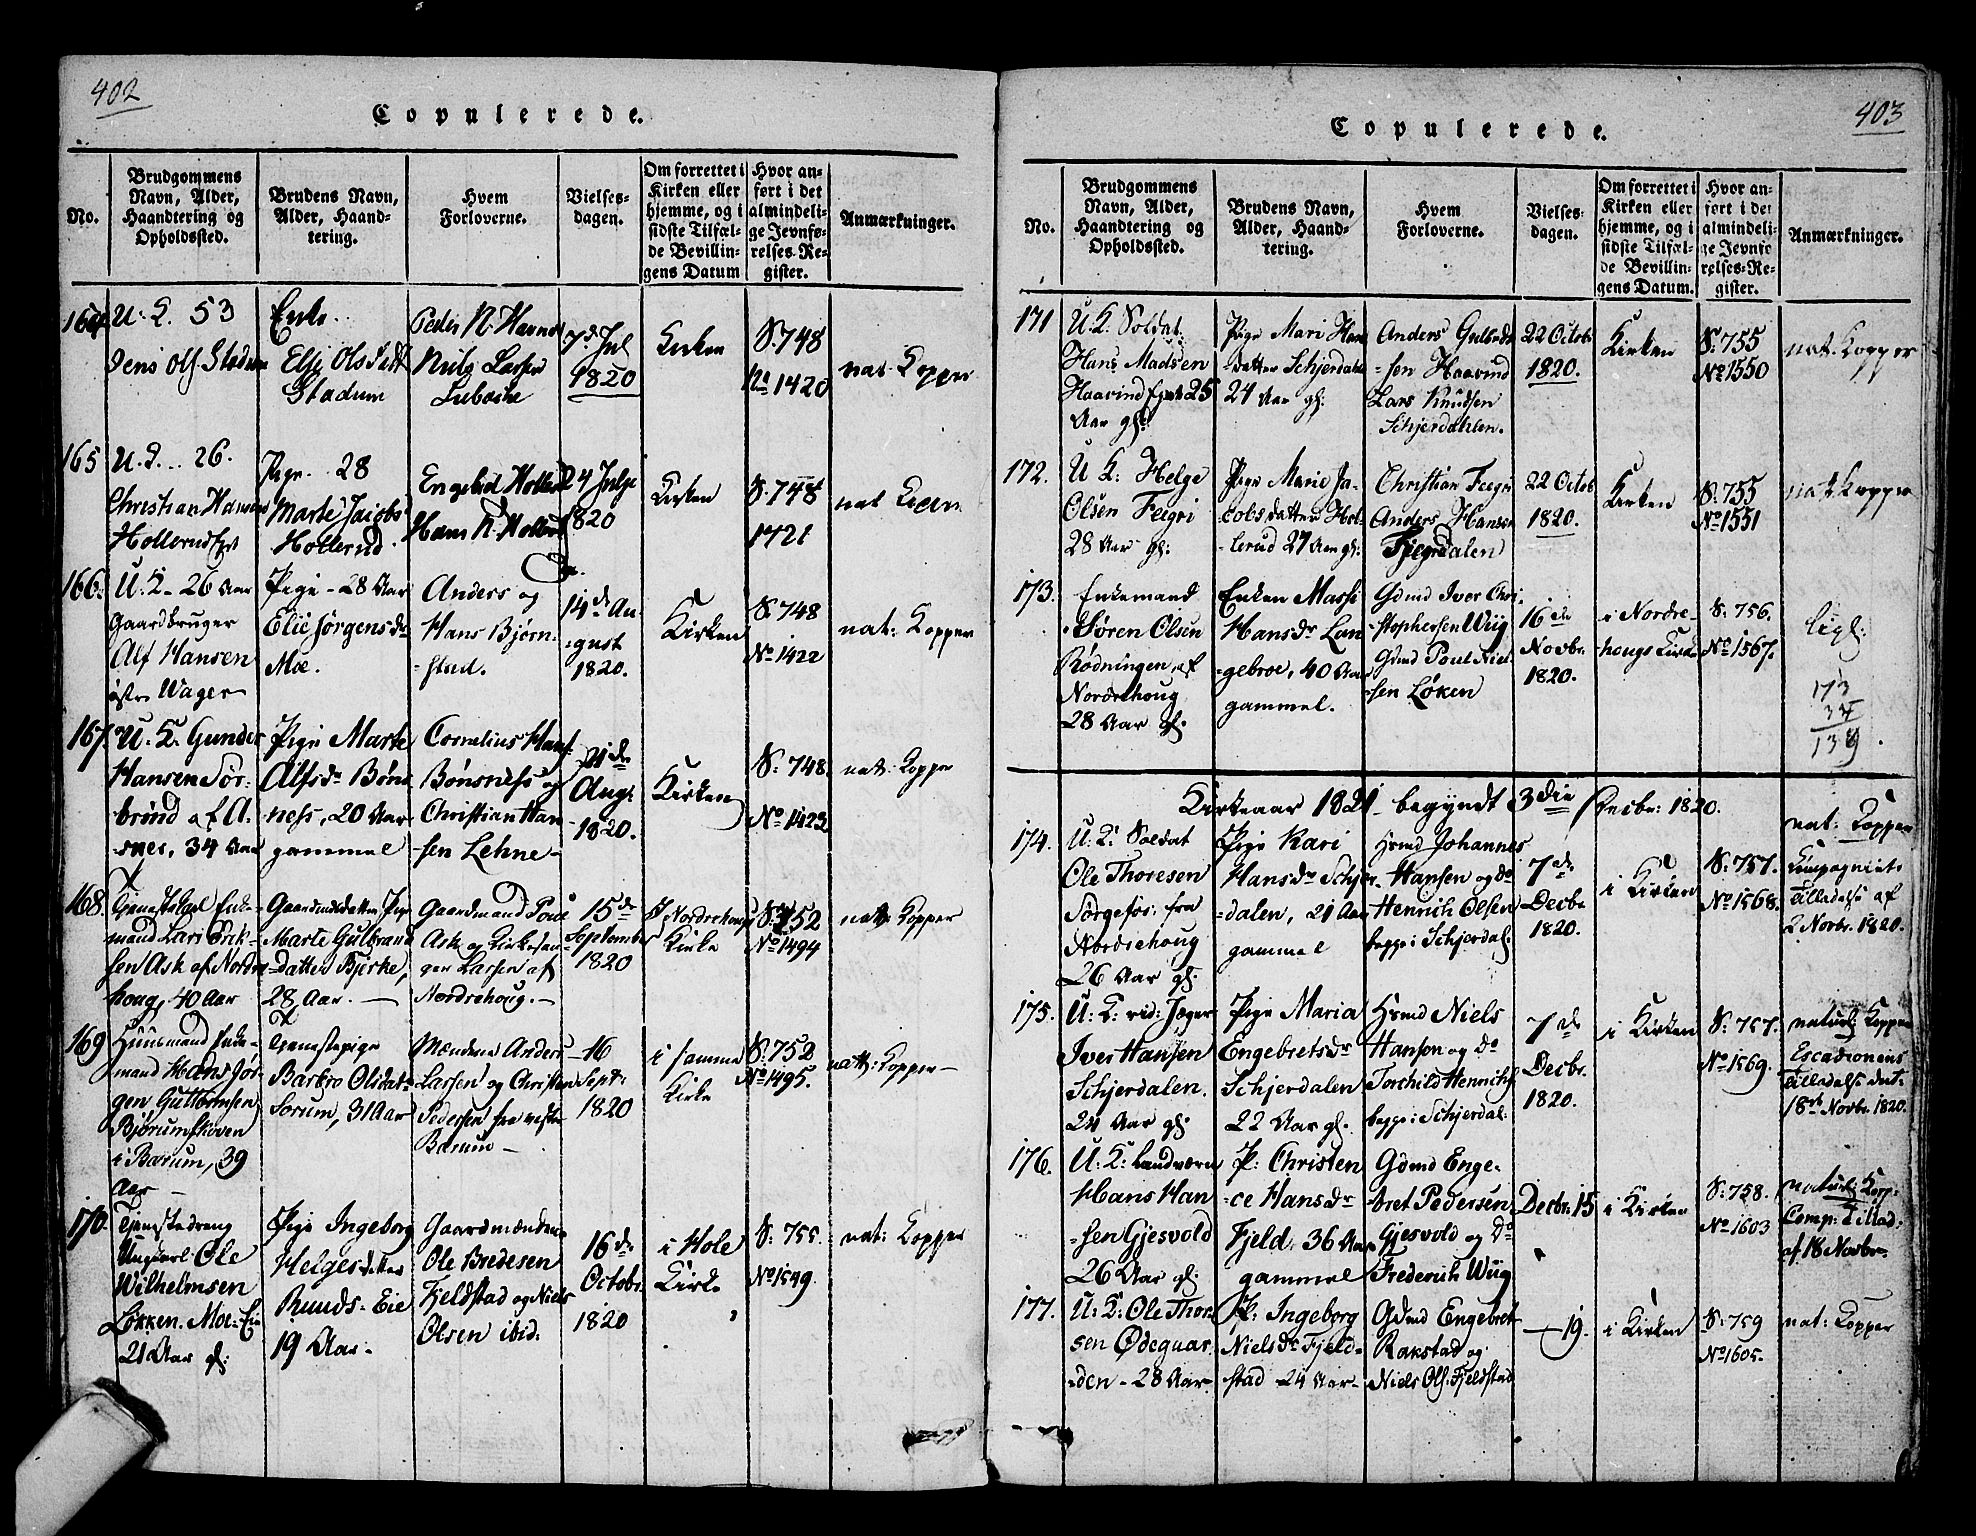 402
Copulerede.
No.
Brudgommens
Navn, Alder,
Haandtering og
Opholdssted.
Brudens Navn,
Alder, Haand-
tering.
Hvem
Forloverne.
Vielses-
dagen.
Om forrettet i
Kirken eller
hjemme, og i
sidste Tilfæl-
de Bevillin-
gens Datum
Hvor an-
ført i det
almindeli-
ge Jevnfø-
relses-Re-
gister.
Anmærkninger.
164.
U. K. 53
Jens Ols. Stadum
Enke
Elsje Olsdatt
Stadum
Peder N. Havnor
Niels Larsen
7de Jul
1820
Kirken
S. 748
No 1420
nat. Kopper
165
U. K. .. 26.
Christian Hansen
Hollerud Ejet
Pige. 28
Marte Jacobs
Hollerud.
Engebret Hollerud
Hans N. Hollerud
24 Julji
1820
Kirken
S. 748
1421
nat
166.
U. K. - 26 Aar
Gaardbruger
Alf Hansen
østre Wager
Pige - 28 Aar
Elie Jørgensdr
Moe.
Anders og
Hans Bjørn-
-stad.
14de Au-
-gust
1820.
Kirken
S. 748
No 1422
nat: Kopper
167.
U. K. Gunder
Hansen Sør-
brønd af A-
-snes, 34 Aar
Pige Marte
Alfsdr Bøns
ness, 20 Aar
gammel
Cornelius Hans
Bønsness og
Christian Han
-sen Lehne -
21de
Aug:
1820.
Kirken
S: 748.
No 1423.
nat: Kopper
168.
Tjenestekarl Enke-
mand Lars Erik-
sen Ask af Nordre
houg, 40 Aar
Gaardmdsdatter Pige
Marte Gulbrands
-datter Bjerke,
28 Aar. -
Gaardmand Povel
Ask og Kirkesan-
gen Larsen af
Nordrehoug. -
15de
September
1820
Nordrehougs
Kirke
S: 752
No 1494
nat: Kopper
169
Huusmand Enke-
mand Hans Jør-
gen Guttormsen
Bjørumskoven
i Bærum, 39
Aar -
Tjenestepige
Barbro Olsdatr
Sorum, 31 Aar
Mændene Anders
Larsen og Christen
Pedersen fra vestre
Bærum -
- 16
Sept:
1820
i samme
Kirke
S: 752
No 1495.
nat: Kopper -
170.
Tjenestedreng
Ungkarl Ole
Wilhelmsen
Løkken. Moe-Eie
21 Aar gl:
Pige Ingeborg
Helgesdatter
Ruuds-Eie
19 Aar -
Gaardmændene
Ole Bredesen
Fjeldstad og Niels
Olsen ibid:
16de
Octobr
1820
i Hole
Kirke
S: 755.
No 1549.
nat: Kopper
403
Copulerede.
No.
Brudgommens
Navn, Alder,
Haandtering og
Opholdssted.
Brudens Navn,
Alder, Haand-
tering.
Hvem
Forloverne.
Vielses-
dagen.
Om forrettet i
Kirken eller
hjemme, og i
sidste Tilfæl-
de Bevillin-
gens Datum.
Hvor an-
ført i det
almindeli-
ge Jevnfø-
relses-Re-
gister.
Anmærkninger.
171
U. K. Soldat
Hans Madsen
Haavind Ejet 25
Aar gl:
Pige Mari Hans
datter Schjerdahl
24 Aar gl:
Anders Gulbrands
-sen Haavind
Lars Knudsen
Schjerdahlen.
22 Octobr
1820.
Kirken
S: 755
No 1550
nat. Kopper
172.
U K: Helge
Olsen Feigri
28 Aar gl:
Pige Marie Ja-
cobsdatter Hol-
-lerud 27 Aar gl:
Christian Feigri
Anders Hansen
Fjegrdalen
22 Octob
1820.
Kirken
S: 755
No 1551
nat Kopper
173.
Enkemand
Søren Olsen
Rødningen af
Nordrehoug
28 Aar gl.
Enken Massi
Hansdr Lan
-gebroe, 40 Aar
gammel.
Gdmd Iver Chri-
-stophersen Wiig
Gdmd Poul Niel-
-sen Løken
16de
Novbr.
1820.
i Nordre-
hougs Kirke
S: 756.
No 1567.
ligl:
173
34
139.
Kirkeaar 1821 begyndt 3die Decbr: 1820.
174.
U: K: Soldat
Ole Thoresen
Sørgefos: fra
Nordrehoug
26 Aar gl.
Pige Kari
Hansdr Schjer-
-dalen, 21 Aar
gammel
Hsmd Johannes
Hansen og do
Henrich Olsen
begge i Schjerdal.
7de
Decbr
1820.
i Kirken
S: 757.
No 1568.
nat: Kopper
Compagniets
Tilladelse af
2 Novbr. 1820.
175.
U: K: rid: Jæger
Iver Hansen
Schjerdalen.
24 Aar gl:
Pige Maria
Engebretsdr
Schjerdalen
22 Aar gl.
Hsmd Niels
Hanson og Do
Torchild Henrichs
begge i Schjerdal.
7de
Decbr.
1820.
i Kirken
S: 757.
No 1569.
naturl: Kopper
Escadronens
Tilladelse dat:
18de Novbr. 1820.
176.
U: K: Landværn
Hans Han
-sen Gjesvold
26 Aar gl.
P: Christen
-ce Hansdr
Fjeld, 36 Aar
gammel
Gdmd Enge-
-bret Pedersen
Gjesvold og Do
Frederich Wiig
Decbr. 15
i Kirken
S: 758.
No 1603
naturl: Kop:
Comp: Tillad:
af 18 Novbr.
177.
U: K: Ole Thor-
sen Ødegaar
-den - 28 Aar
P: Ingeborg
Nielsdr Fjeld-
-stad - 24 Aar -
Gdmd Engebret
Rakstad og
Niels Ols: Fjeldstad
- 19.
i Kirken
S: 759
No 1605.
nat: Kopper